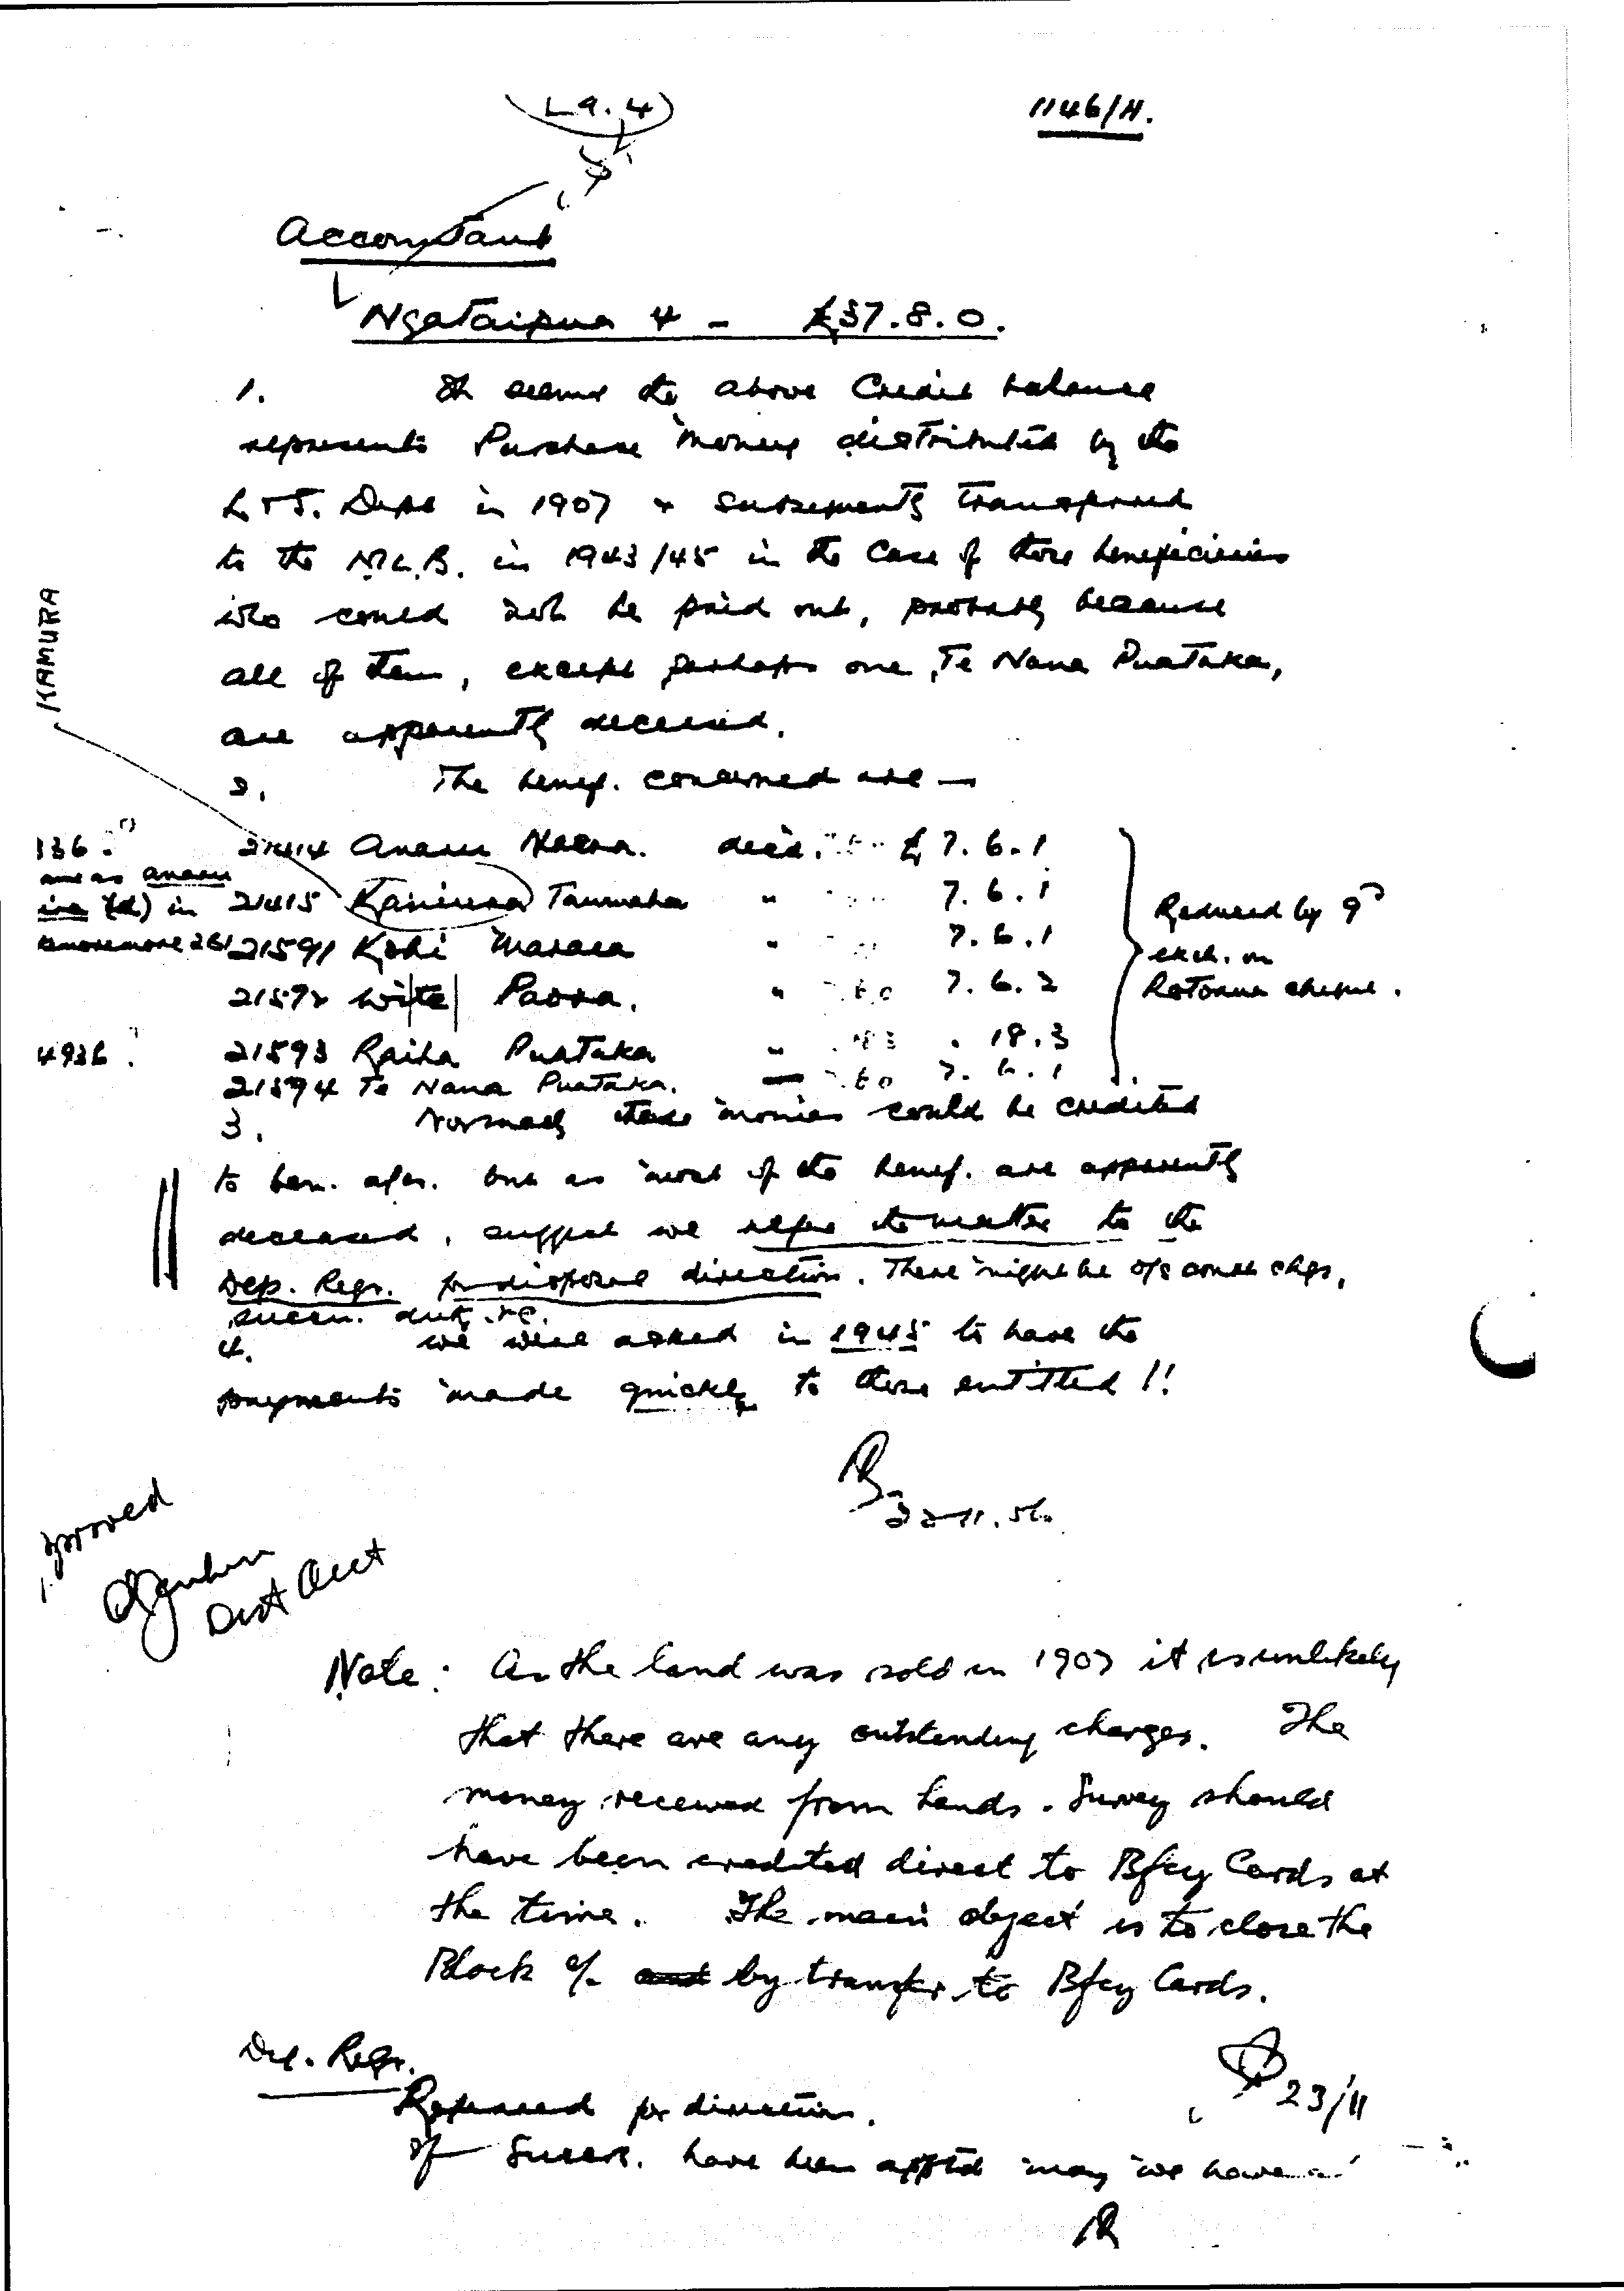 L9.4
1146/H.
Accountant
Ngataipua 4 - £37.8.0.
1. It seems the above Credit balance
represents Purchase money distributed by the
L & S. Dept in 1907 & subsequently transferred
to the M.L.B. in 1943/45 in the case of those beneficiaries
who could not be paid out, probably because
all of them, except perhaps one, Te Nana Puataka,
are apparently deceased.
KAMURA
2. The benef. concerned are —
336. 21414 Anaru decd. £7.6.1
same as Anaru
(d) in 21415 Kamuraa Taumaha " 7.6.1
261 21591 Kohi Maraea " 7.6.1
21592 Wite Paora. " 7.6.2
4936. 21593 Raiha Puataka " . 18.3
21594 Te Nana Puataka. — 7.6.1
Reduced by 9d
exch. on
Rotorua cheque.
3. Normally these monies could be credited
to ben. a/cs. but as most of the benef. are apparently
deceased, suggest we refer the matter to the
Dep. Regr. for disposal direction. There might be o/s court chgs,
succn. duty etc.
4. We were asked in 1945 to have the
payments made quickly to those entitled !!
22.11.56.
Approved
Dist Acct
Note: As the land was sold in 1907 it is unlikely
that there are any outstanding charges. The
money received from Lands & Survey should
have been credited direct to Bfcy Cards at
the time. The main object is to close the
Block a/c and by transfer to Bfcy Cards.
23/11
Dep. Regr.
Referred for direction.
If Succrs. have been apptd may we have